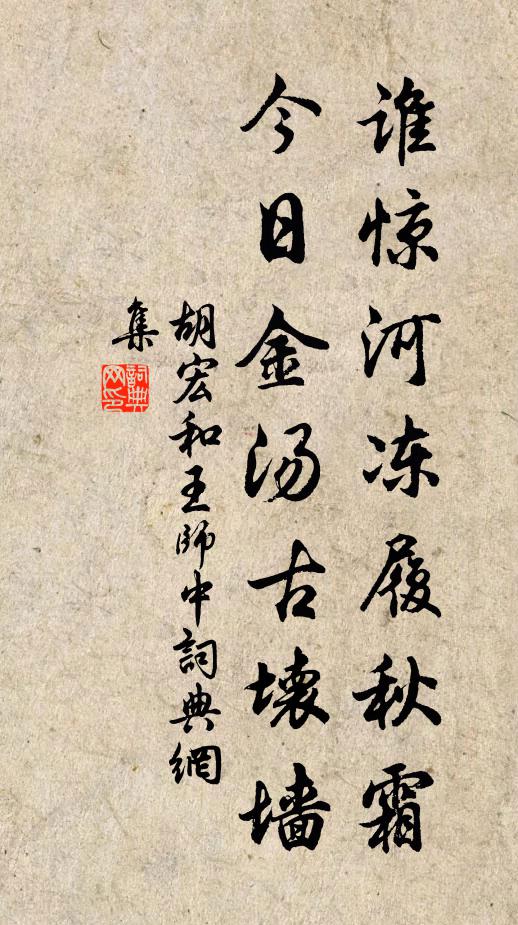 谁惊河冻履秋霜
今日金汤古坏墙
胡宏和王师中詞典網
集
詞典
网印